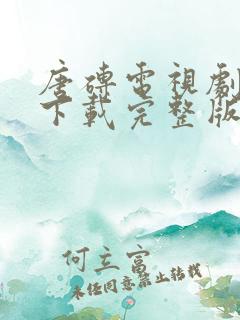 唐磚電視劇
下載完整版
何立富
未經同意禁止轉載